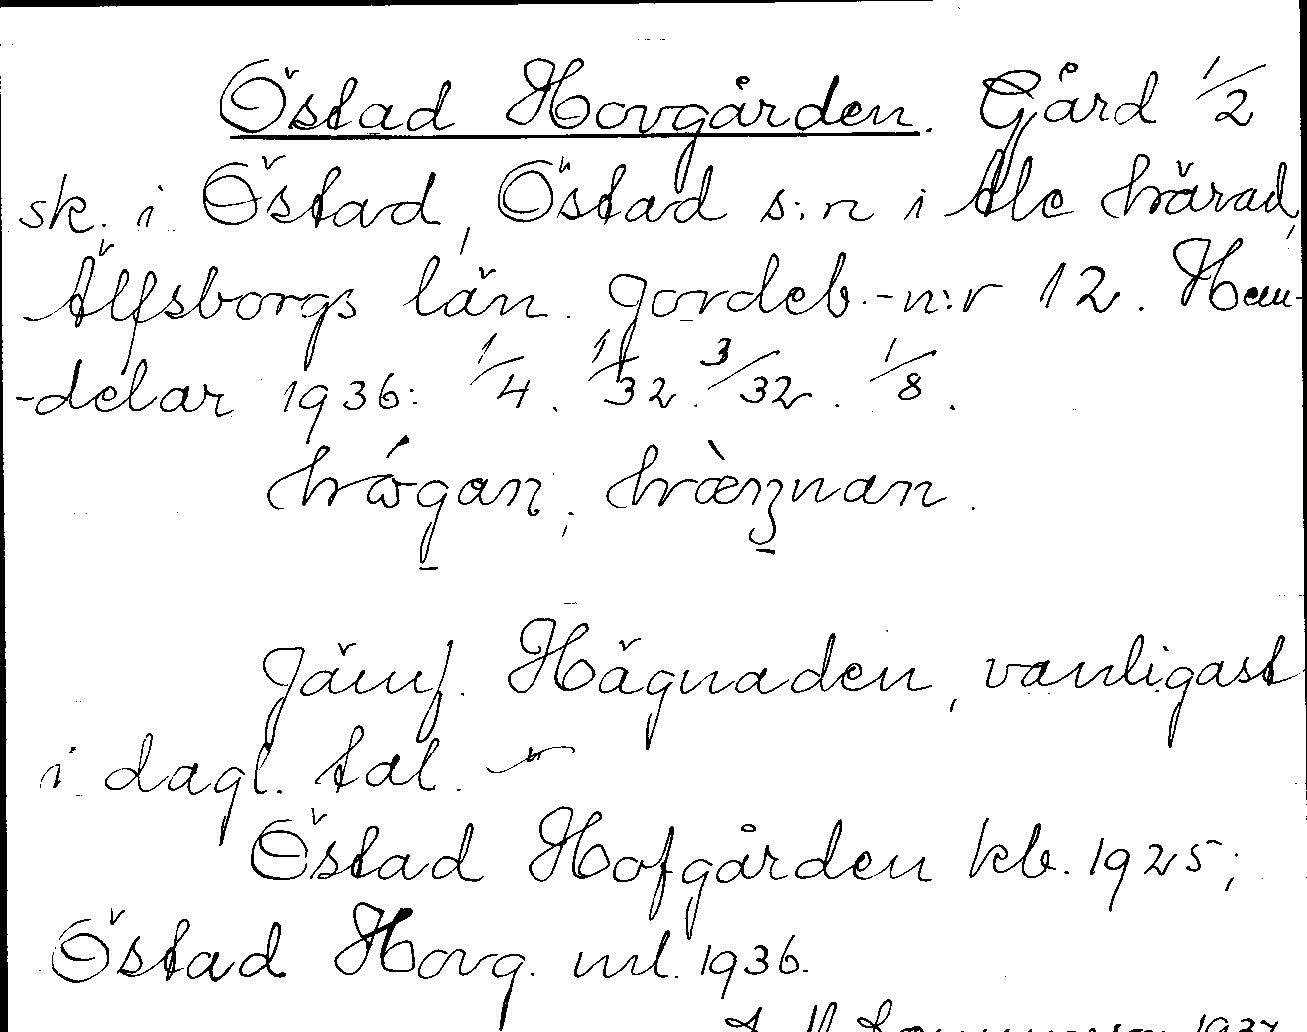 Östad Hovgården. Gård 1/2
sk. i Östad, Östad s:n i Ale härad,
Älfsborgs län. Jordeb.-n:r 12. Hem-
-delar 1936: 1/4. 1/32. 3/32. 1/8.
Jämf. Hägnaden, vanligast
i dagl. tal.
Östad Hofgården kb. 1925;
Östad Hovg. ml. 1936.
1937